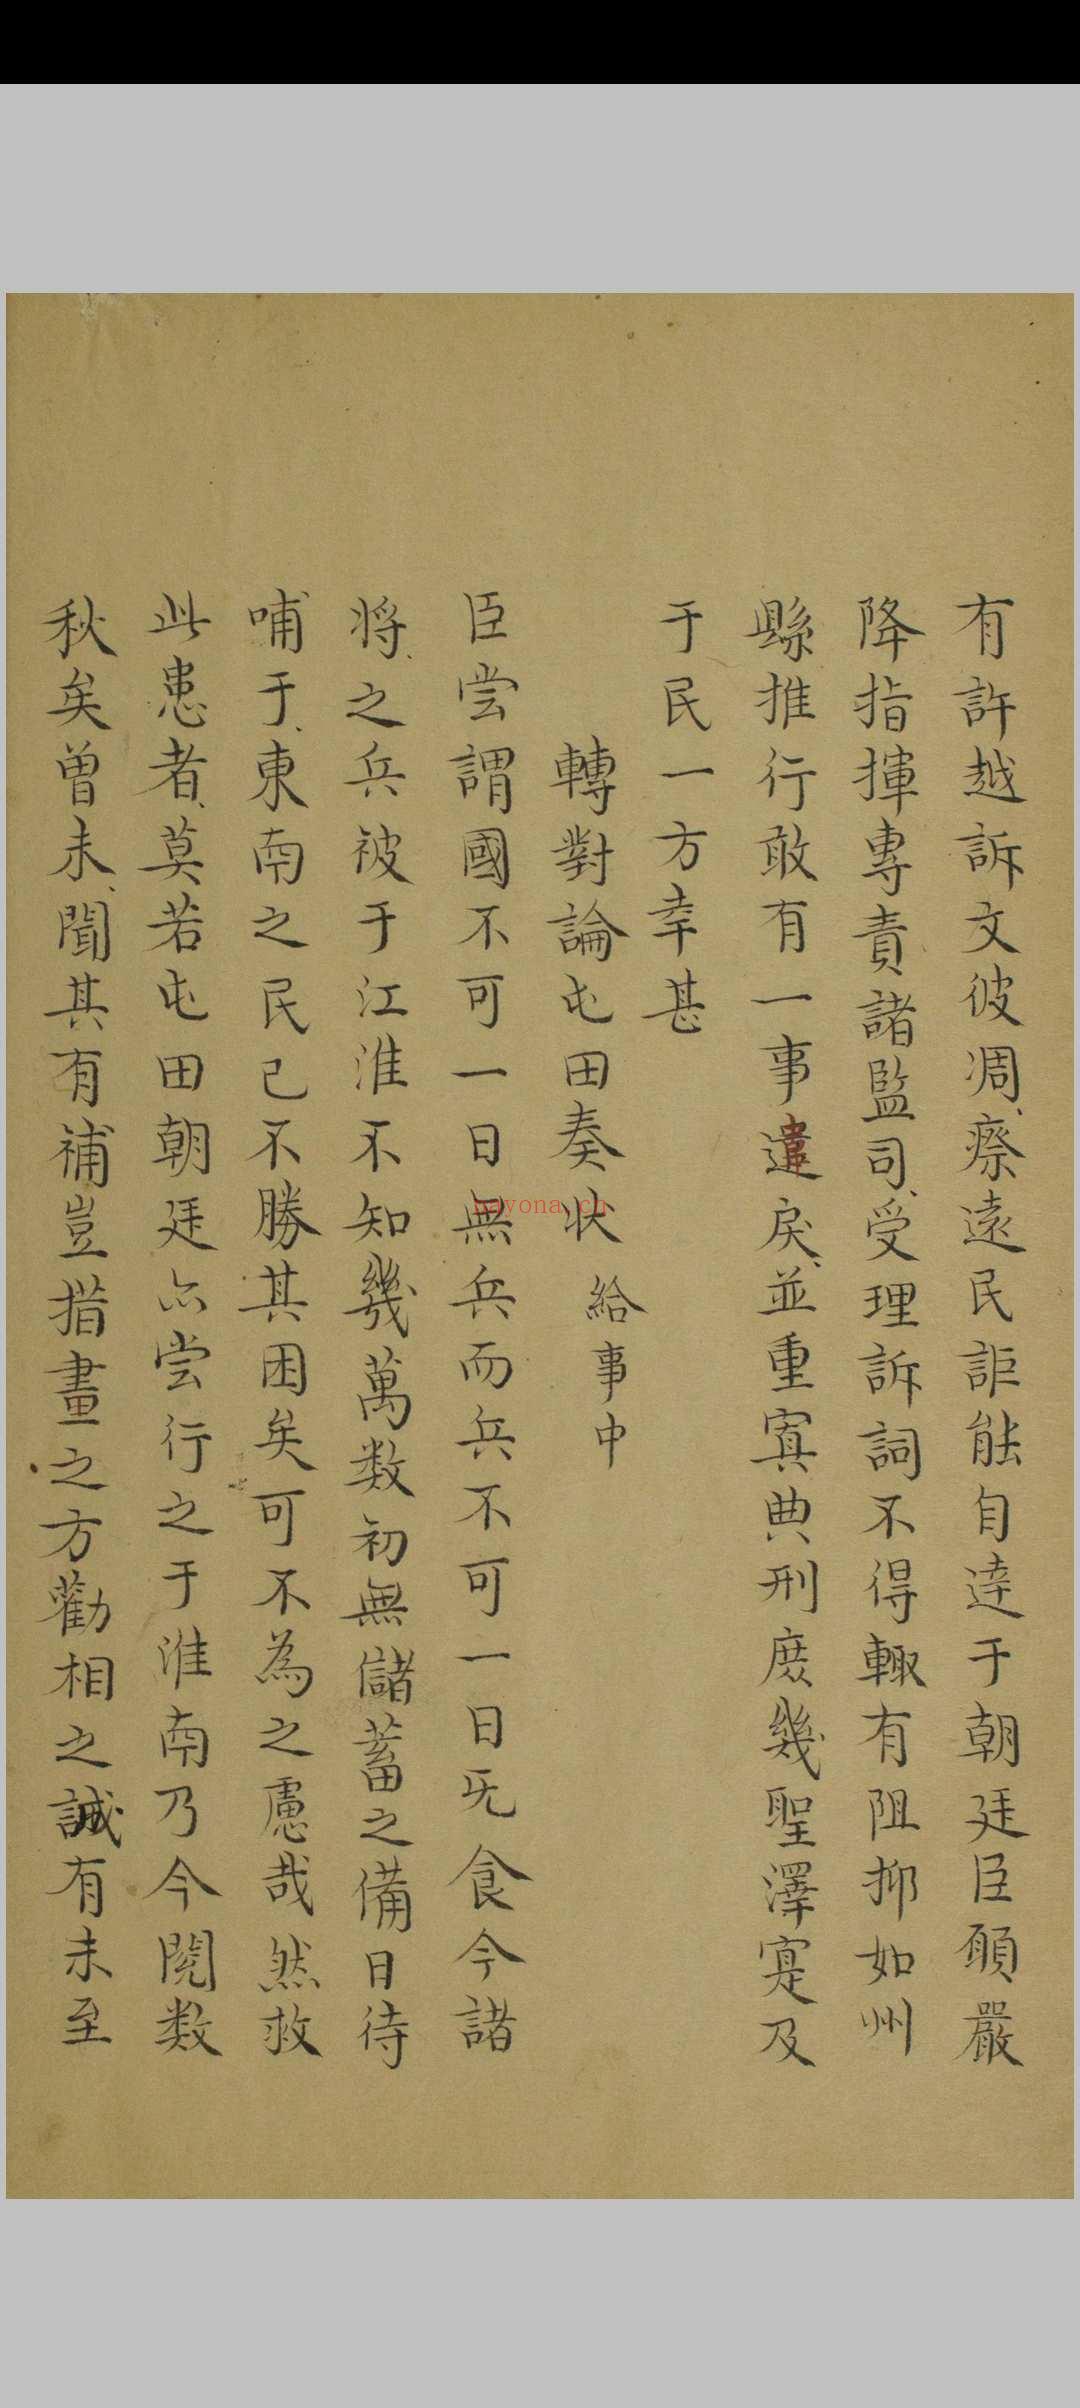 有許越訴文彼凋瘵遠民詎能自達于朝廷臣願嚴
降指揮專責諸監司受理訴詞不得輙有阻抑如州
縣推行敢有一事違戾並重寘典刑庶幾聖澤寔及
于民一方幸甚
轉對論屯田奏状 給事中
臣尝謂國不可一日無兵而兵不可一日旡食今諸
将之兵被于江淮不知幾萬数初無儲蓄之備日待
哺于東南之民已不勝其困矣可不為之慮哉然救
此患者莫若屯田朝廷亦尝行之于淮南乃今閱数
秋矣曾未聞其有補豈措畫之方勸相之誠有未至
nayona.cn